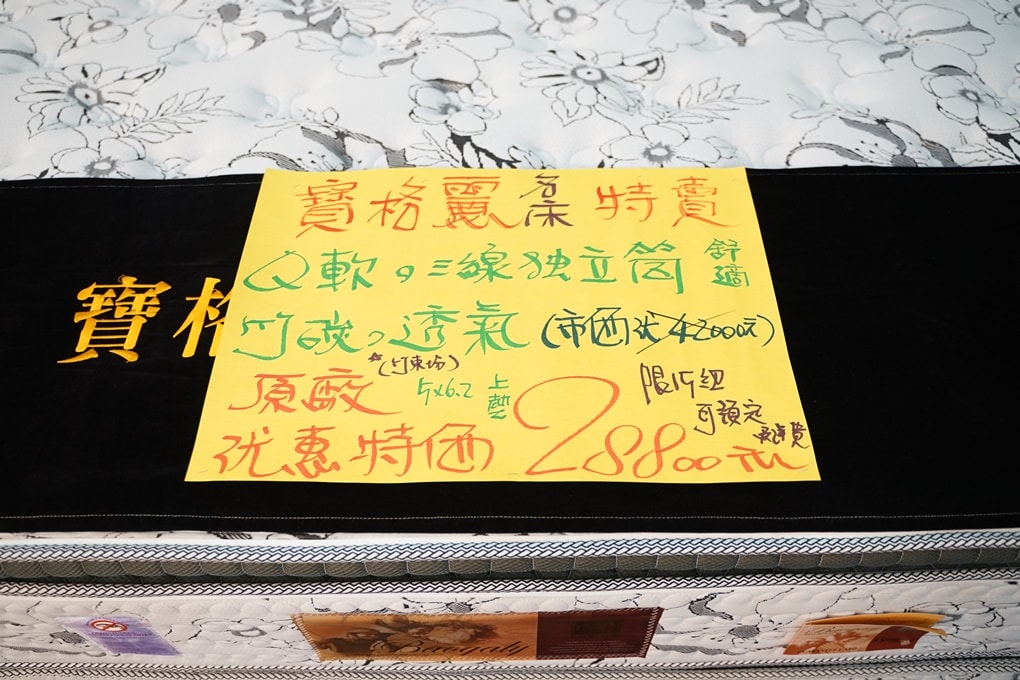 寶格麗名床特賣
Q軟，三線独立筒舒適
竹碳，透氣(市価大42000元)
(竹東場)
原廠 5X6.2 上墊
限15組
可預定
优惠特価28800元
寶格
Baogaly